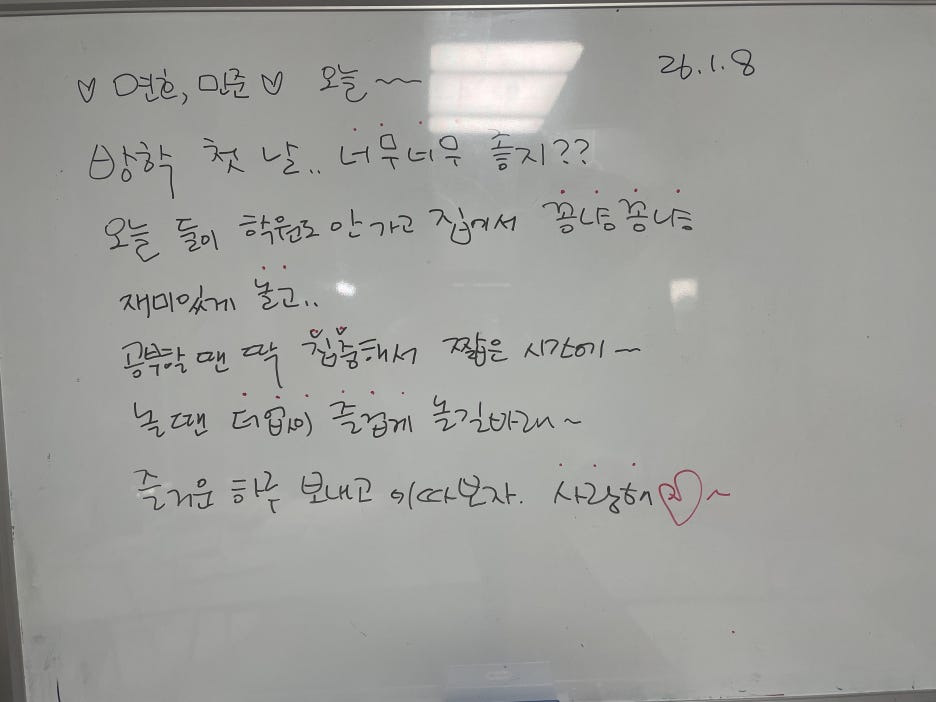 ♡ 연호, 민준 ♡ 오늘~ 26.1.8
방학 첫 날.. 너무너무 좋지??
오늘 둘이 학원도 안가고 집에서 꽁냥꽁냥
재미있게 놀고..
공부할 땐 딱 집중해서 짧은 시간에~
놀 땐 더없이 즐겁게 놀길바래~
즐거운 하루 보내고 이따보자. 사랑해♡~